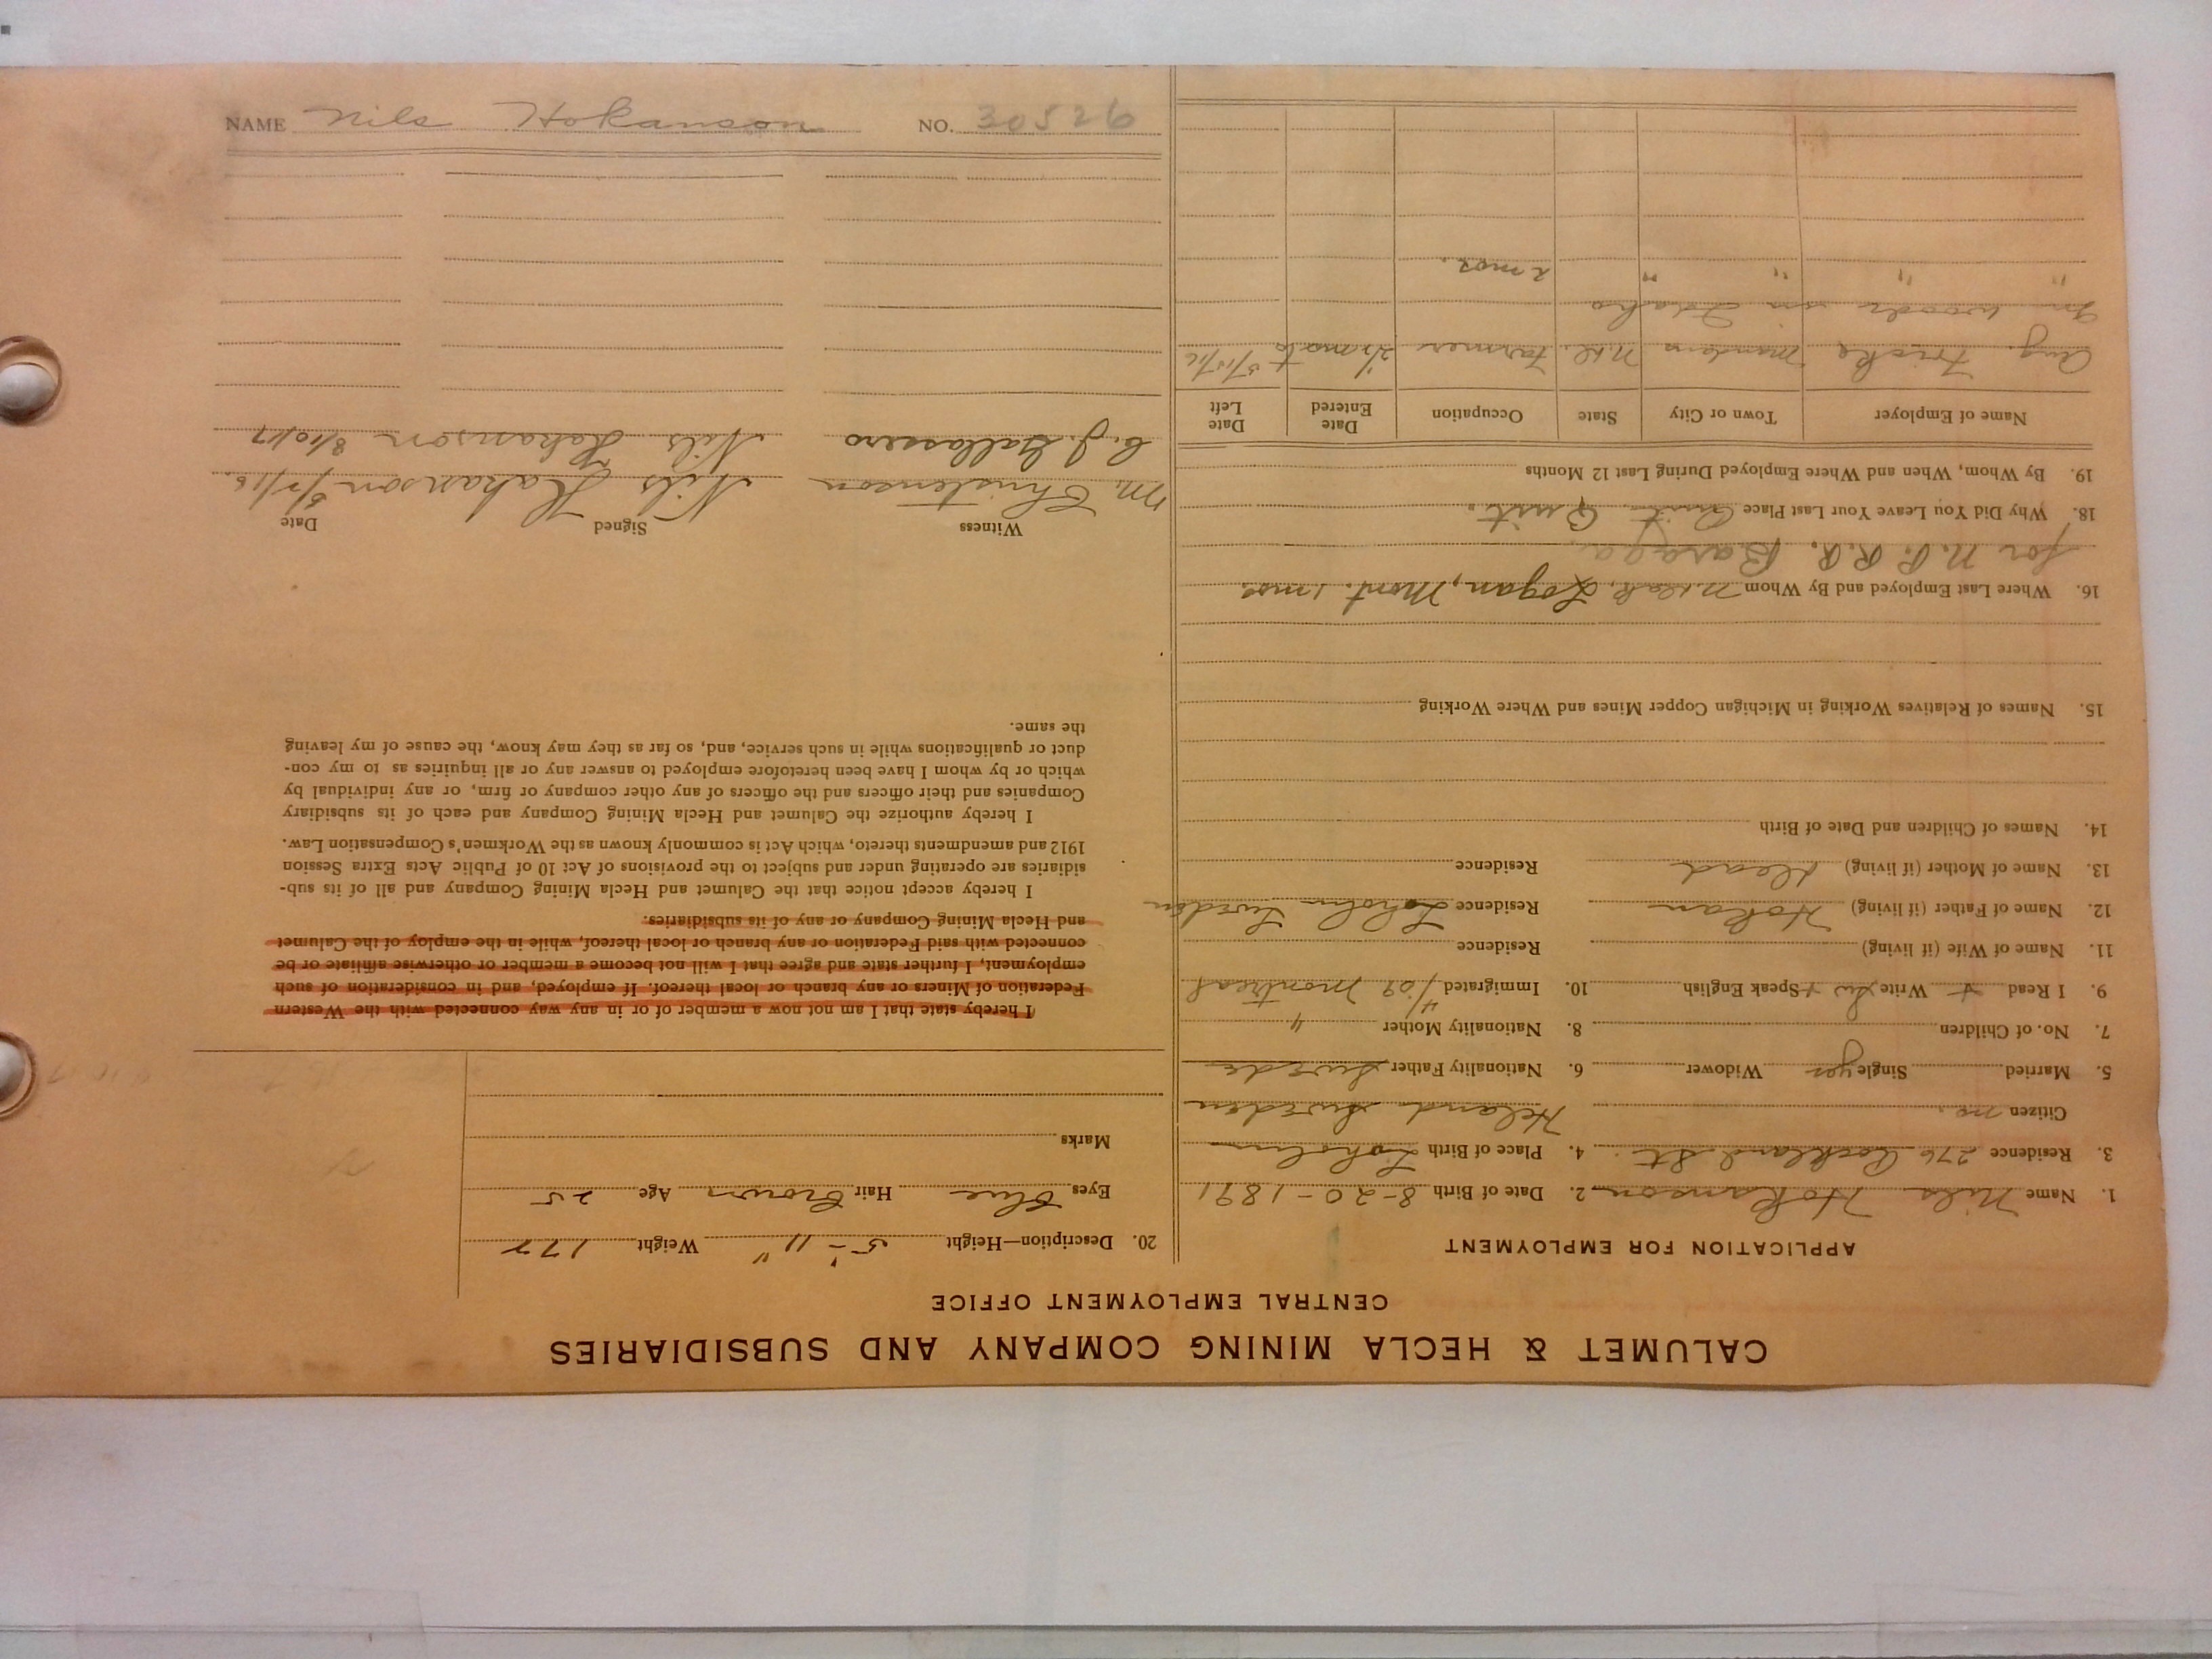 NAME Nils Hokanson NO. 30526
CALUMET & HECLA MINING COMPANY AND SUBSIDIARIES
CENTRAL EMPLOYMENT OFFICE
APPLICATION FOR EMPLOYMENT
1. Name Nils Hokanson 2. Date of Birth 8-20-1891
3. Residence 276 Rockland St. 4. Place of Birth Loholm
Citizen no. Heland Sweden
5. Married Single yes Widower 6. Nationality Father Swede
7. No. of Children 8. Nationality Mother "
9. I Read + Write Sw + Speak English 10. Immigrated 4/09 Montreal
11. Name of Wife (if living) Residence
12. Name of Father (if living) Hokan Residence Loholm Sweden
13. Name of Mother (if living) dead Residence
14. Names of Children and Date of Birth
15. Names of Relatives Working in Michigan Copper Mines and Where Working
16. Where Last Employed and By Whom Logan, Mont. 1 mos.
for N.P. R.R. Baraga
18. Why Did You Leave Your Last Place Quit Quit.
19. By Whom, When and Where Employed During Last 12 Months
Name of Employer Town or City State Occupation Date Entered Date Left
Aug. Fricke Mandan N.d. Farmer 2 1/2 mos to 5/15/16
In woods in Idaho
" " " " 2 mos.
20. Description—Height 5'-11" Weight 177
Eyes blue Hair brown Age 25
Marks
I hereby state that I am not now a member of or in any way connected with the Western
Federation of Miners or any branch or local thereof. If employed, and in consideration of such
employment, I further state and agree that I will not become a member or otherwise affiliate or be
connected with said Federation or any branch or local thereof, while in the employ of the Calumet
and Hecla Mining Company or any of its subsidiaries.
I hereby accept notice that the Calumet and Hecla Mining Company and all of its sub-
sidiaries are operating under and subject to the provisions of Act 10 of Public Acts Extra Session
1912 and amendments thereto, which Act is commonly known as the Workmen's Compensation Law.
I hereby authorize the Calumet and Hecla Mining Company and each of its subsidiary
Companies and their officers and the officers of any other company or firm, or any individual by
which or by whom I have been heretofore employed to answer any or all inquiries as to my con-
duct or qualifications while in such service, and, so far as they may know, the cause of my leaving
the same.
Witness Signed Date
M. Christenson Nils Hakanson
C. J. Nils Hakanson 8/10/17